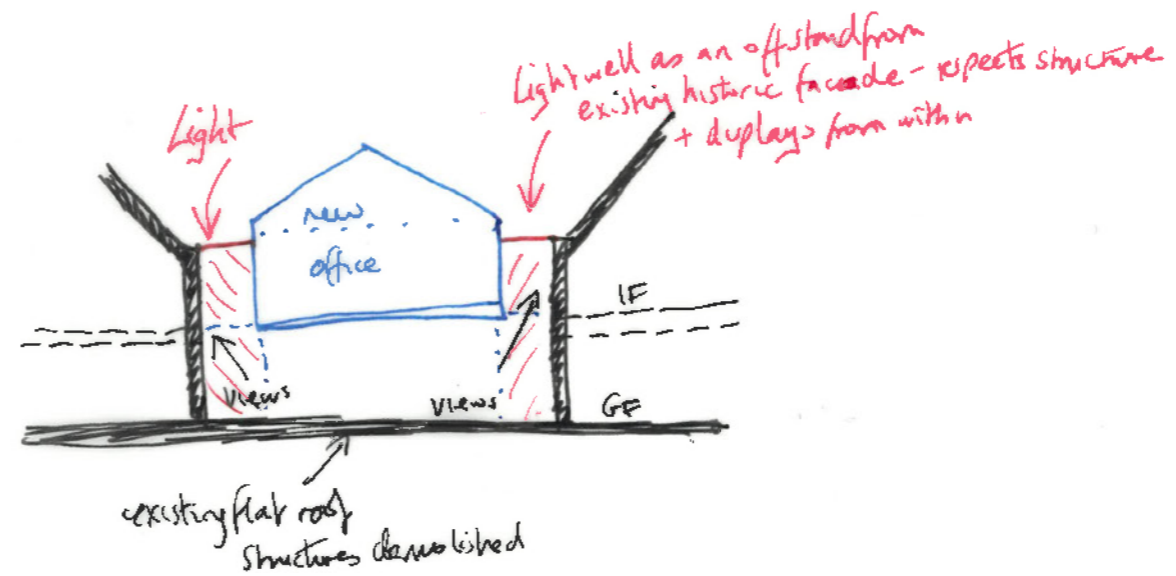 Lightwell as an offstand from
existing historic facade - respects structure
+ displays from within
Light
new
office
1F
views
views
GF
existing flat roof
structures demolished